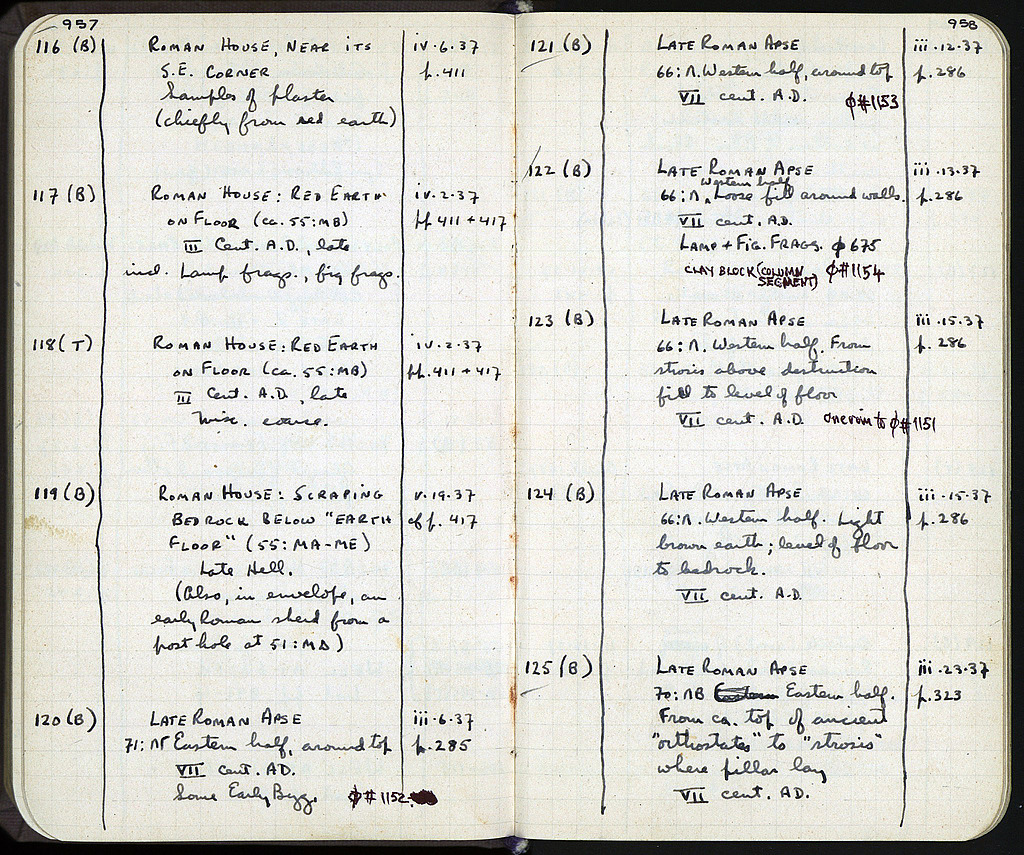 957
116 (B) ROMAN HOUSE, NEAR ITS iv.6.37
S.E. CORNER p.411
Samples of plaster
(chiefly from red earth)
117 (B) ROMAN HOUSE: RED EARTH iv.2.37
ON FLOOR (ca. 55:MB) pp 411+417
III Cent. A.D., late
incl. Lamp frags., fig frags.
118 (T) ROMAN HOUSE: RED EARTH iv.2.37
ON FLOOR (ca. 55:MB) pp.411+417
III Cent. A.D., late
Misc. coarse.
119 (B) ROMAN HOUSE: SCRAPING v.19.37
BEDROCK BELOW "EARTH cf p. 417
FLOOR" (55:MA-ME)
Late Hell.
(Also, in envelope, an
early Roman sherd from a
post hole at 51:MD)
120 (B) LATE ROMAN APSE iii.6.37
71:ΛΓ Eastern half, around top p.285
VII cent. AD.
Some Early Byz. φ#1152
958
121 (B) LATE ROMAN APSE iii.12.37
66:Λ. Western half, around top p.286
VII cent. A.D. φ#1153
122 (B) LATE ROMAN APSE iii.13.37
Western half
66:Λ. Loose fill around walls. p.286
VII cent. A.D.
LAMP + FIG. FRAGS. φ675
CLAY BLOCK (COLUMN φ#1154
SEGMENT)
123 (B) LATE ROMAN APSE iii.15.37
66:Λ. Western half. From p. 286
strosis above destruction
fill to level of floor
VII cent. A.D. one rim to φ#1151
124 (B) LATE ROMAN APSE iii.15.37
66:Λ. Western half. Light p.286
brown earth; level of floor
to bedrock.
VII cent. A.D.
125 (B) LATE ROMAN APSE iii.23.37
70:ΛB Eastern half. p.323
From ca. top of ancient
"orthostates" to "strosis"
where pillar lay
VII cent. AD.